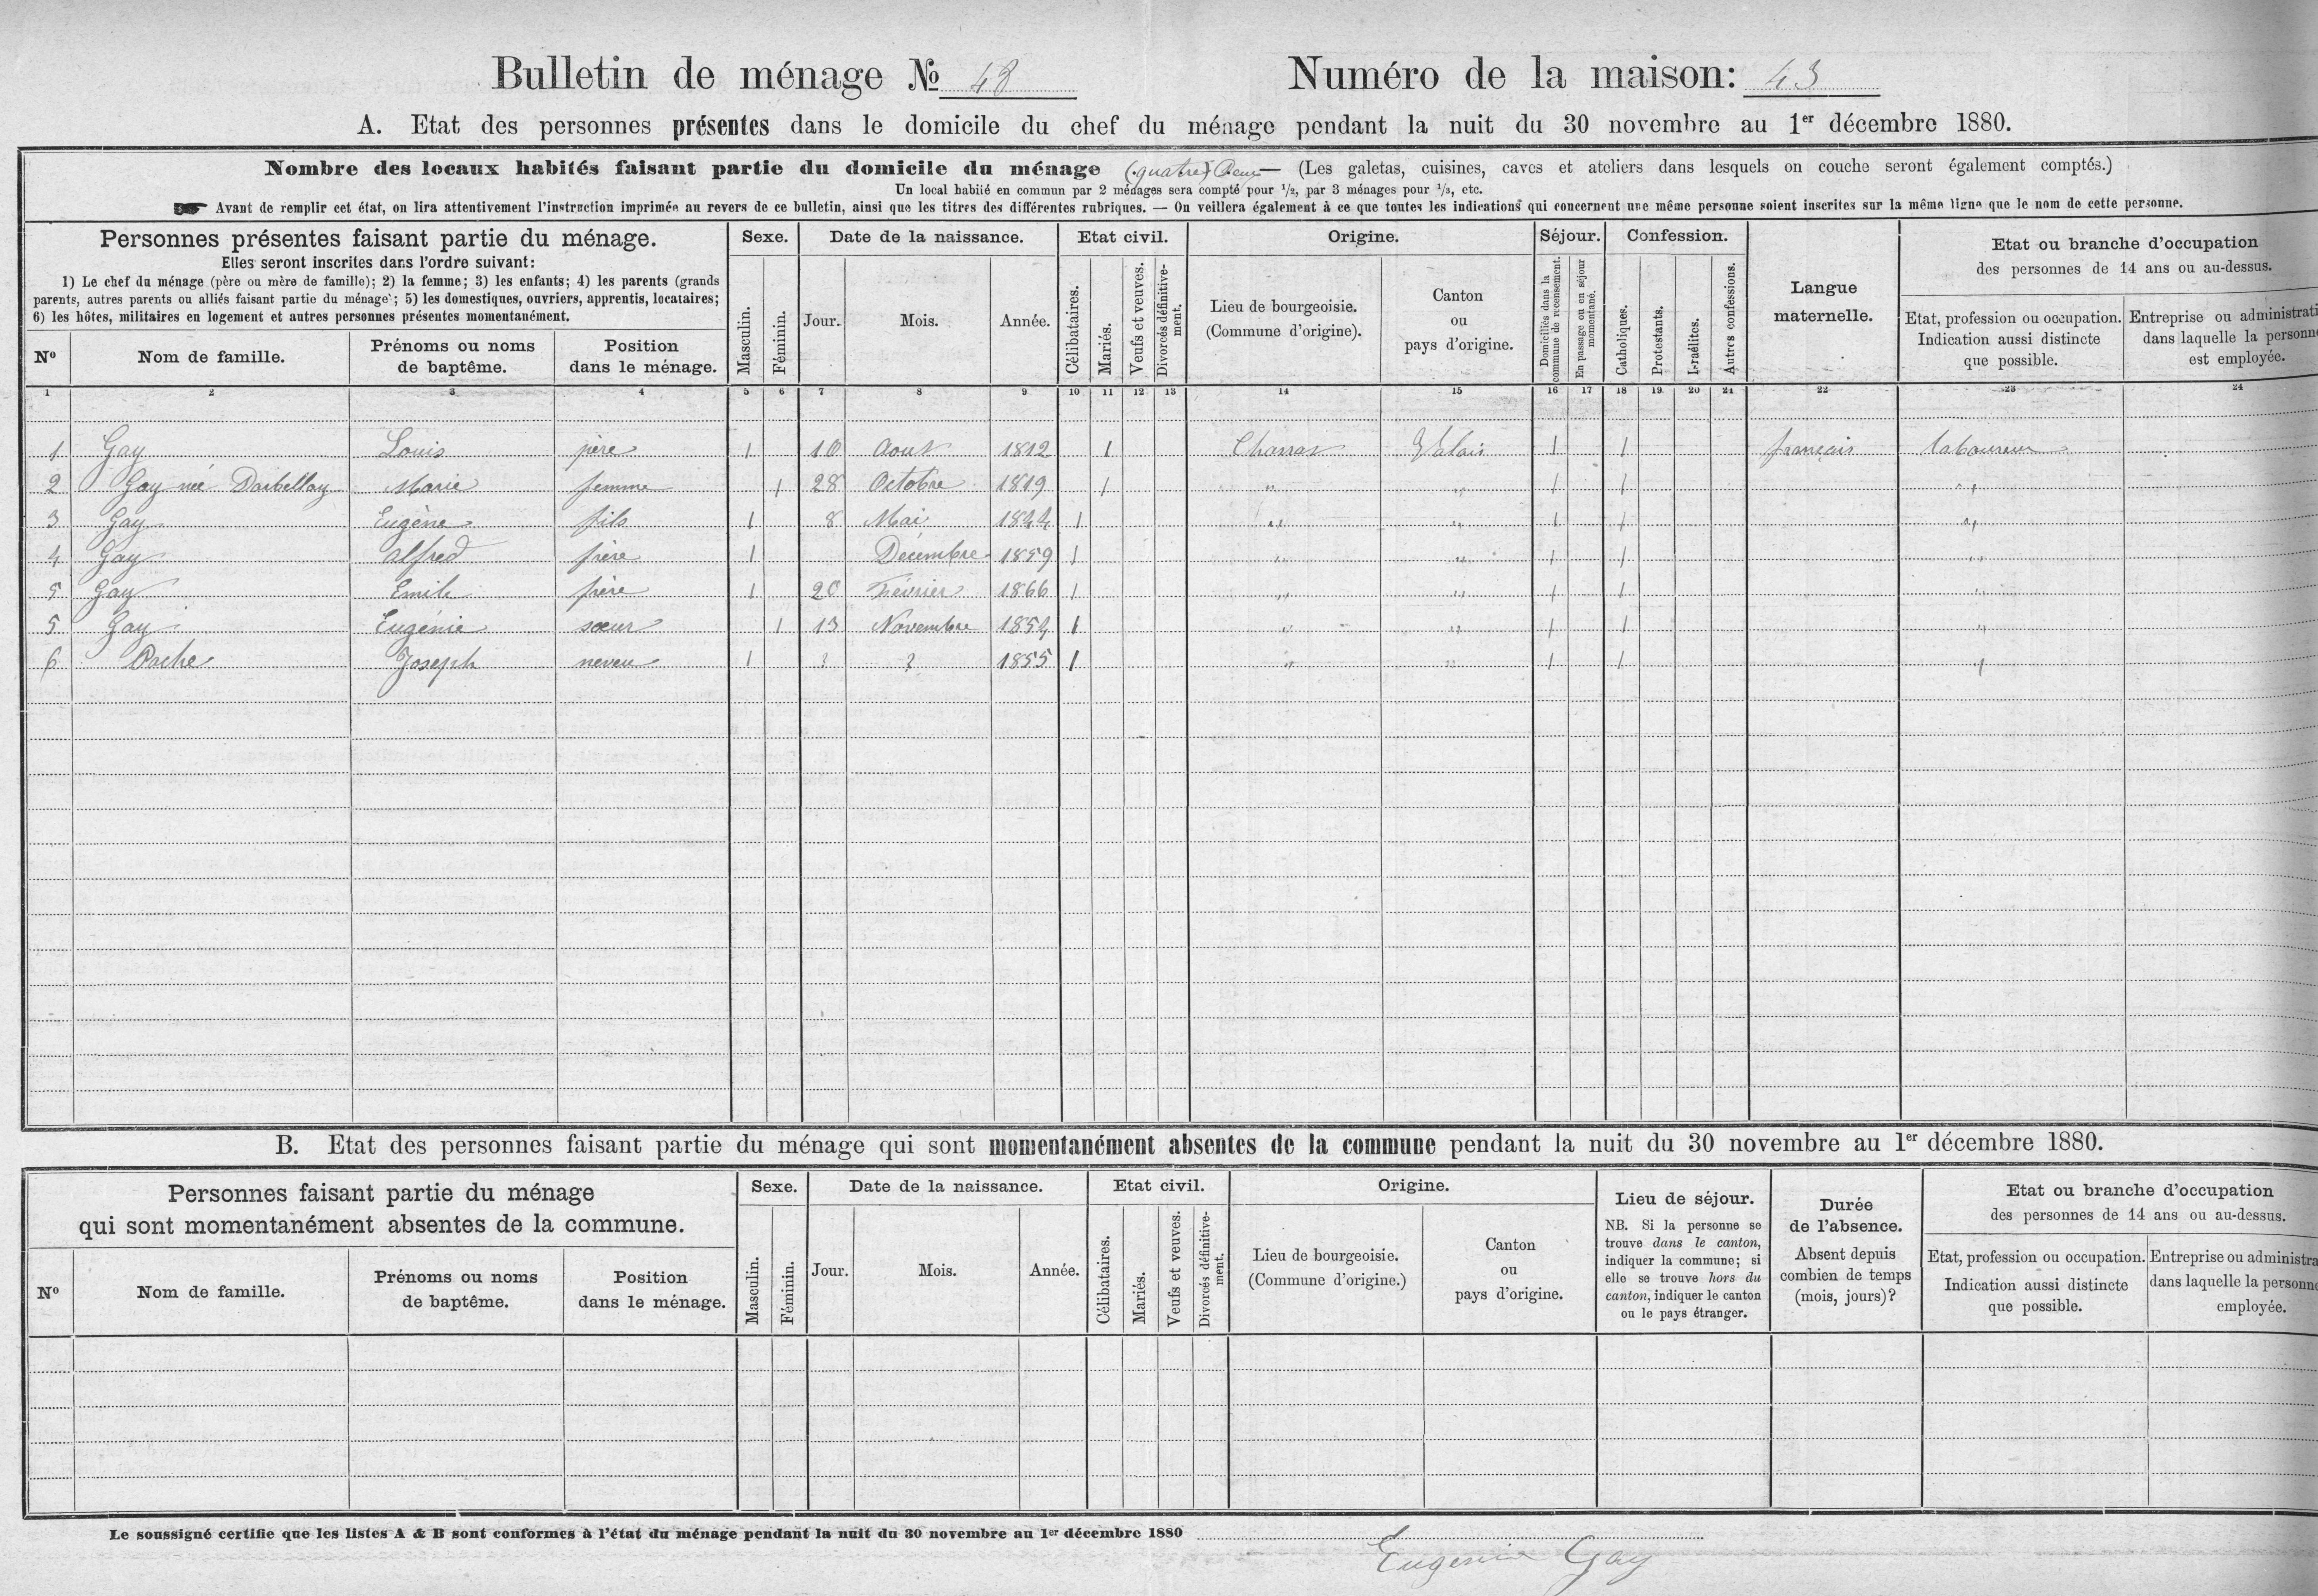 Bulletin de ménage No 48
Numéro de la maison: 43
A. Etat des personnes présentes dans le domicile du chef du ménage pendant la nuit du 30 novembre au 1er décembre 1880.
Nombre des locaux habités faisant partie du domicile du ménage (quatre) Deux — (Les galetas, cuisines, caves et ateliers dans lesquels on couche seront également comptés.)
Un local habité en commun par 2 ménages sera compté pour 1/2, par 3 ménages pour 1/3, etc.
Avant de remplir cet état, on lira attentivement l'instruction imprimée au revers de ce bulletin, ainsi que les titres des différentes rubriques. — On veillera également à ce que toutes les indications qui concernent une même personne soient inscrites sur la même ligne que le nom de cette personne.
Personnes présentes faisant partie du ménage.
Elles seront inscrites dans l'ordre suivant:
1) Le chef du ménage (père ou mère de famille); 2) la femme; 3) les enfants; 4) les parents (grands
parents, autres parents ou alliés faisant partie du ménage); 5) les domestiques, ouvriers, apprentis, locataires;
6) les hôtes, militaires en logement et autres personnes présentes momentanément.
No
Nom de famille.
Prénoms ou noms
de baptême.
Position
dans le ménage.
Sexe.
Masculin.
Féminin.
Date de la naissance.
Jour.
Mois.
Année.
Etat civil.
Célibataires.
Mariés.
Veufs et veuves.
Divorcés définitive-
ment.
Origine.
Lieu de bourgeoisie.
(Commune d'origine).
Canton
ou
pays d'origine.
Séjour.
Domiciliés dans la
commune de recensement.
En passage ou en séjour
momentané.
Confession.
Catholiques.
Protestants.
Israélites.
Autres confessions.
Langue
maternelle.
Etat ou branche d'occupation
des personnes de 14 ans ou au-dessus.
Etat, profession ou occupation.
Indication aussi distincte
que possible.
Entreprise ou administrati
dans laquelle la personne
est employée.
1 2 3 4 5 6 7 8 9 10 11 12 13 14 15 16 17 18 19 20 21 22 23 24
1 Gay Louis père 1 10 Aout 1812 1 Charrat Valais 1 1 français laboureur
2 Gay née Darbellay Marie femme 1 28 Octobre 1819 1 " " 1 1 "
3 Gay Eugène fils 1 8 Mai 1844 1 " " 1 1 "
4 Gay Alfred frère 1 Décembre 1859 1 " " 1 1 "
5 Gay Emile frère 1 20 Février 1866 1 " " 1 1 "
5 Gay Eugénie sœur 1 13 Novembre 1854 1 " " 1 1 "
6 Joseph neveu 1 ? ? 1855 1 " " 1 1 "
B. Etat des personnes faisant partie du ménage qui sont momentanément absentes de la commune pendant la nuit du 30 novembre au 1er décembre 1880.
Personnes faisant partie du ménage
qui sont momentanément absentes de la commune.
No
Nom de famille.
Prénoms ou noms
de baptême.
Position
dans le ménage.
Sexe.
Masculin.
Féminin.
Date de la naissance.
Jour.
Mois.
Année.
Etat civil.
Célibataires.
Mariés.
Veufs et veuves.
Divorcés définitive-
ment.
Origine.
Lieu de bourgeoisie.
(Commune d'origine.)
Canton
ou
pays d'origine.
Lieu de séjour.
NB. Si la personne se
trouve dans le canton,
indiquer la commune; si
elle se trouve hors du
canton, indiquer le canton
ou le pays étranger.
Durée
de l'absence.
Absent depuis
combien de temps
(mois, jours)?
Etat ou branche d'occupation
des personnes de 14 ans ou au-dessus.
Etat, profession ou occupation.
Indication aussi distincte
que possible.
Entreprise ou administra
dans laquelle la personne
employée.
Le soussigné certifie que les listes A & B sont conformes à l'état du ménage pendant la nuit du 30 novembre au 1er décembre 1880
Eugenie Gay